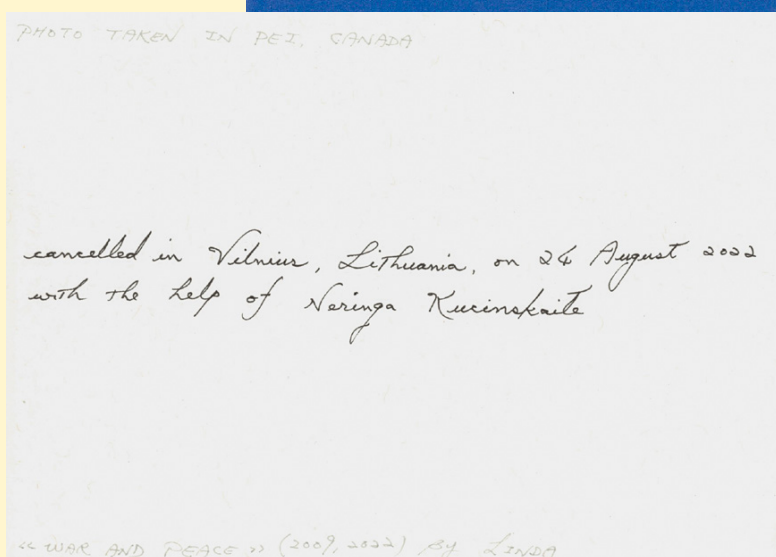 PHOTO TAKEN IN PEI, CANADA
cancelled in Vilnius, Lithuania, on 24 August 2022
with the help of Neringa Kucinskaite
<< WAR AND PEACE >> (2009, 2022) By LINDA